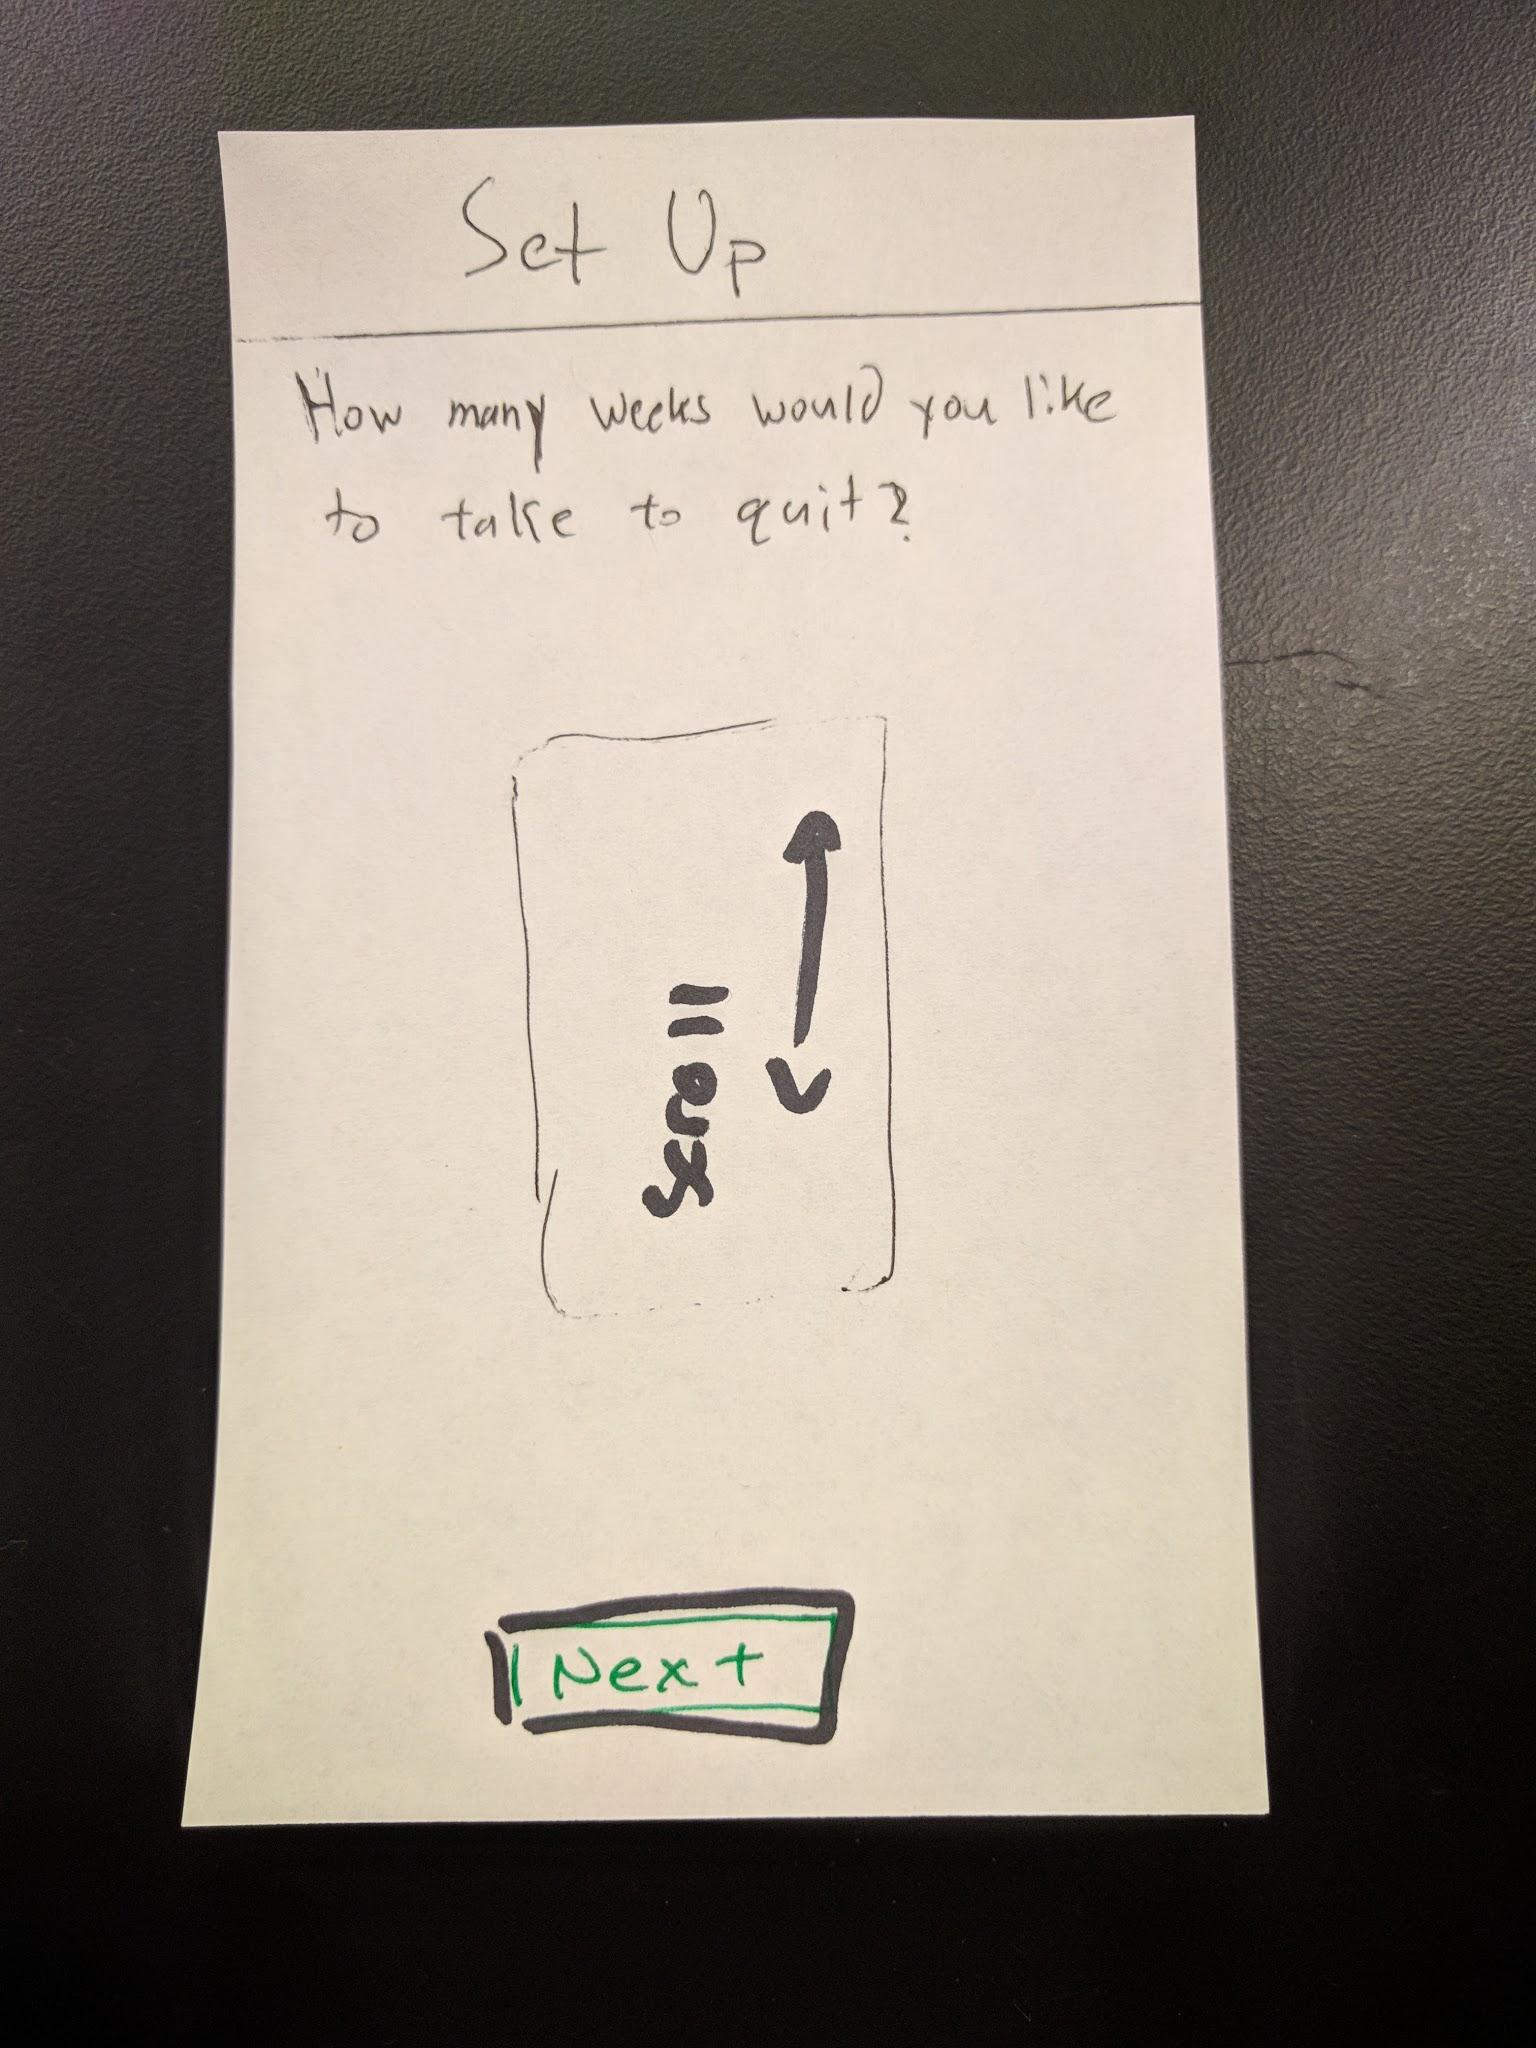 Set Up
How many weeks would you like
to take to quit?
scroll
Next